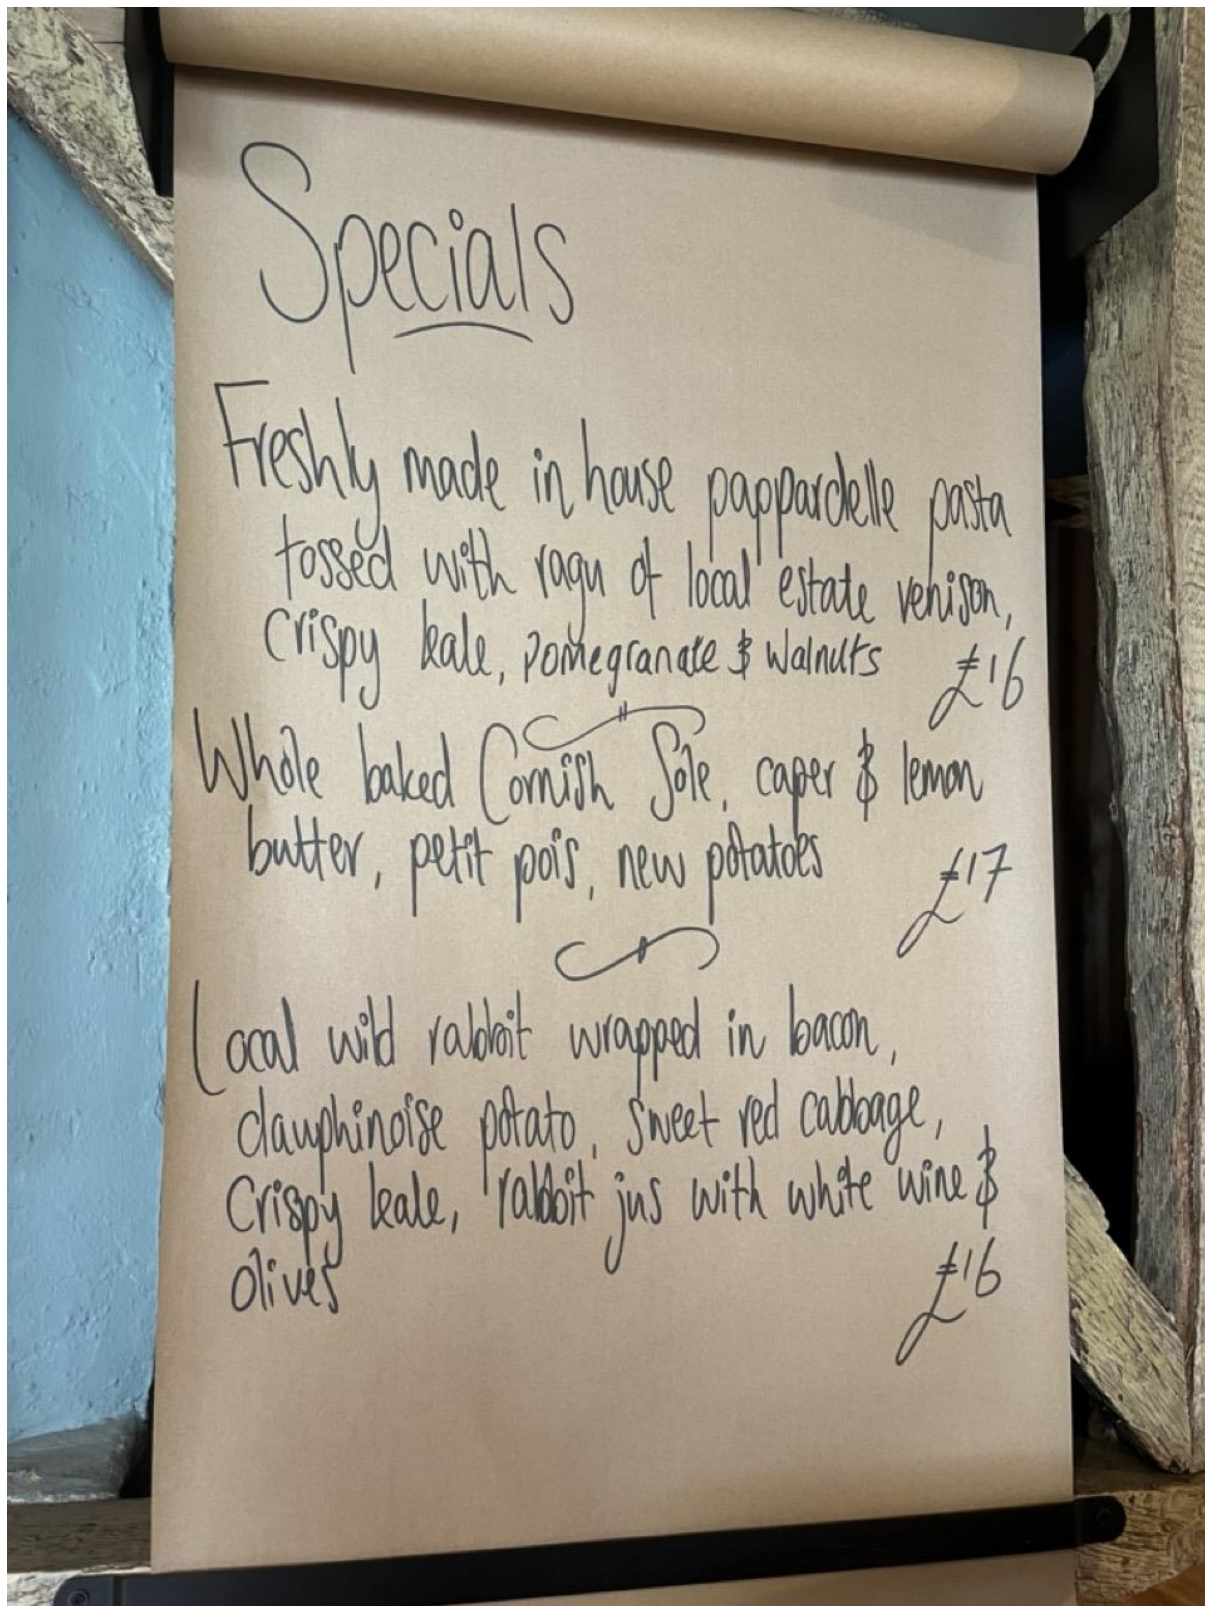 Specials
Freshly made in house pappardelle pasta
tossed with ragu of local estate venison,
Crispy kale, pomegranate & walnuts £16
Whole baked Cornish Sole, caper & lemon
butter, petit pois, new potatoes £17
Local wild rabbit wrapped in bacon,
dauphinoise potato, sweet red cabbage,
Crispy kale, rabbit jus with white wine &
olives £16